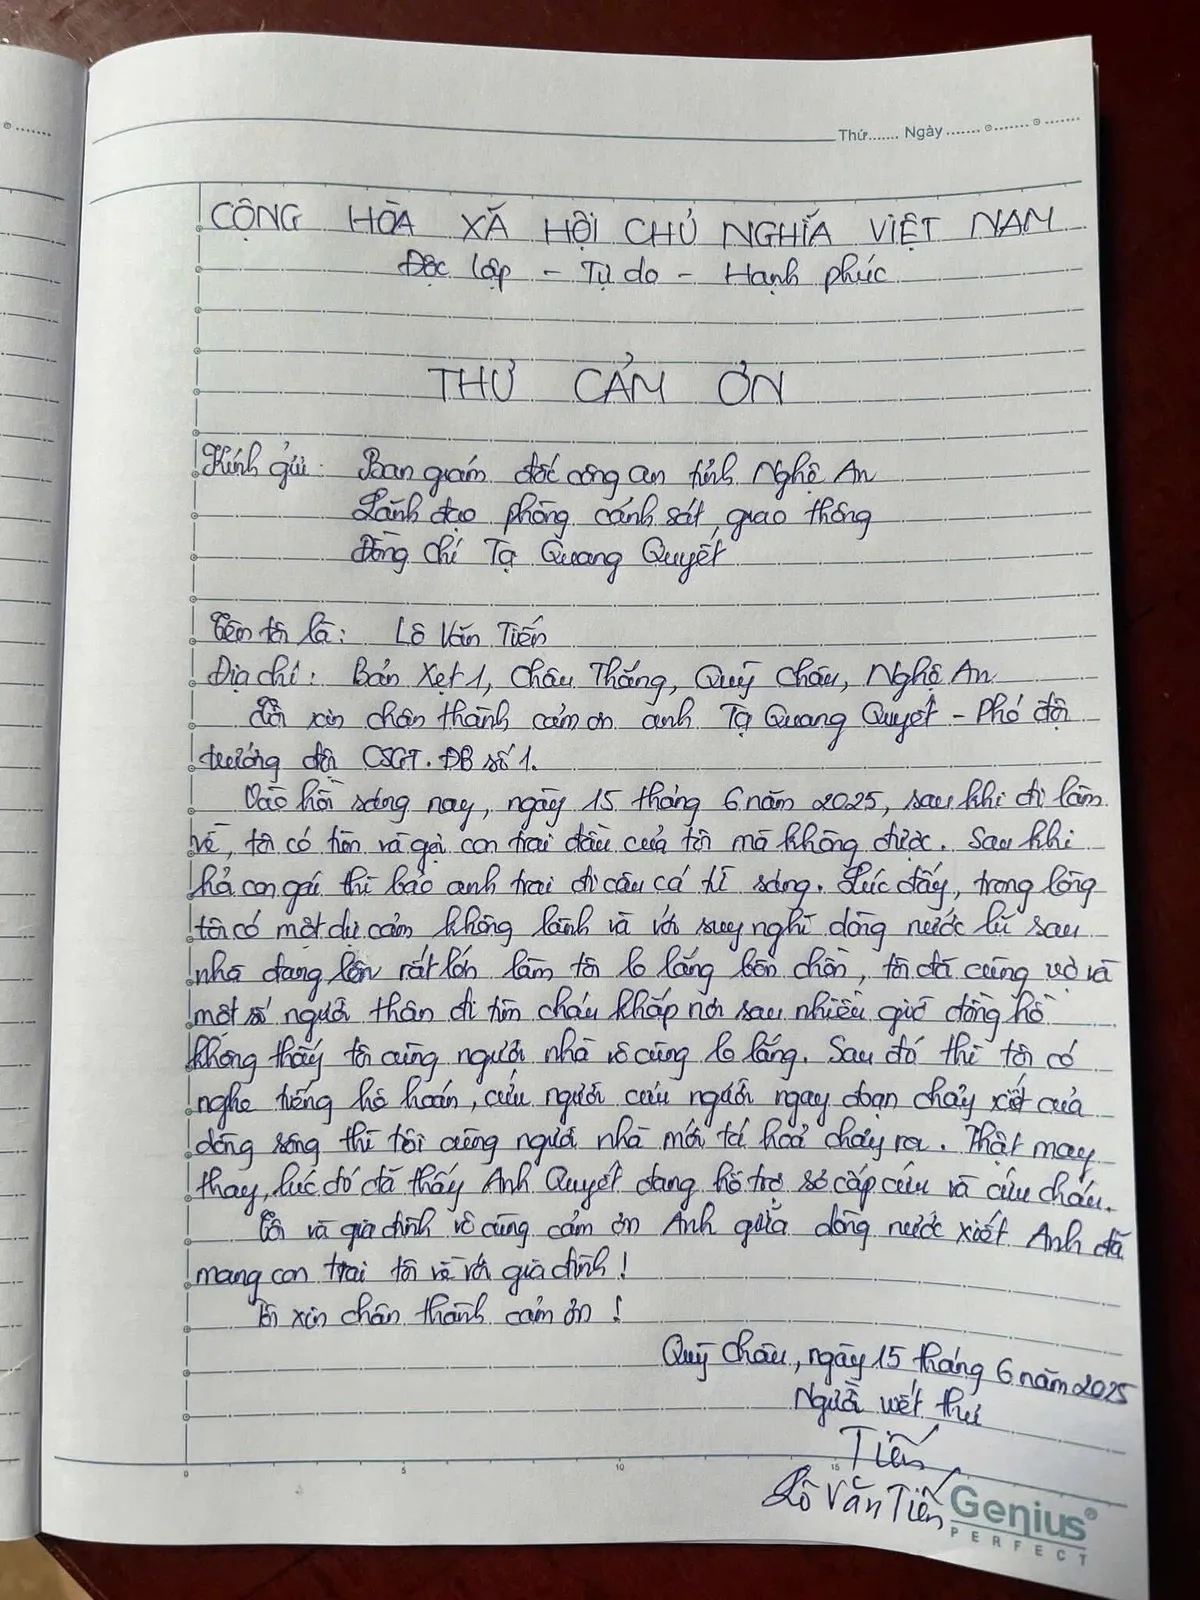 Thứ....... Ngày ....... ....... .......
CỘNG HÒA XÃ HỘI CHỦ NGHĨA VIỆT NAM
Độc lập - Tự do - Hạnh phúc
THƯ CẢM ƠN
Kính gửi: Ban giám đốc công an tỉnh Nghệ An
Lãnh đạo phòng cảnh sát giao thông
Đồng chí Tạ Quang Quyết
Tên tôi là: Lô Văn Tiến
Địa chỉ: Bản Xẹt 1, Châu Thắng, Quỳ Châu, Nghệ An
Tôi xin chân thành cảm ơn anh Tạ Quang Quyết - Phó đội
trưởng đội CSGT. ĐB số 1.
Vào hồi sáng nay, ngày 15 tháng 6 năm 2025, sau khi đi làm
về, tôi có tìm và gọi con trai đầu của tôi mà không được. Sau khi
hỏi con gái thì bảo anh trai đi câu cá từ sáng. Lúc đấy, trong lòng
tôi có một dự cảm không lành và với suy nghĩ dòng nước lũ sau
nhà đang lên rất lớn làm tôi lo lắng bồn chồn, tôi đã cùng vợ và
một số người thân đi tìm cháu khắp nơi sau nhiều giờ đồng hồ
không thấy tôi cùng người nhà vô cùng lo lắng. Sau đó thì tôi có
nghe tiếng hô hoán, cứu người cứu người ngay đoạn chảy xiết của
dòng sông thì tôi cùng người nhà mới tá hoả chạy ra. Thật may
thay, lúc đó đã thấy Anh Quyết đang hỗ trợ sơ cấp cứu và cứu cháu.
Tôi và gia đình vô cùng cảm ơn Anh giữa dòng nước xiết Anh đã
mang con trai tôi về với gia đình!
Tôi xin chân thành cảm ơn!
Quỳ Châu, ngày 15 tháng 6 năm 2025
Người viết thư
Tiến
Lô Văn Tiến
0 5 10 15
Genius®
PERFECT